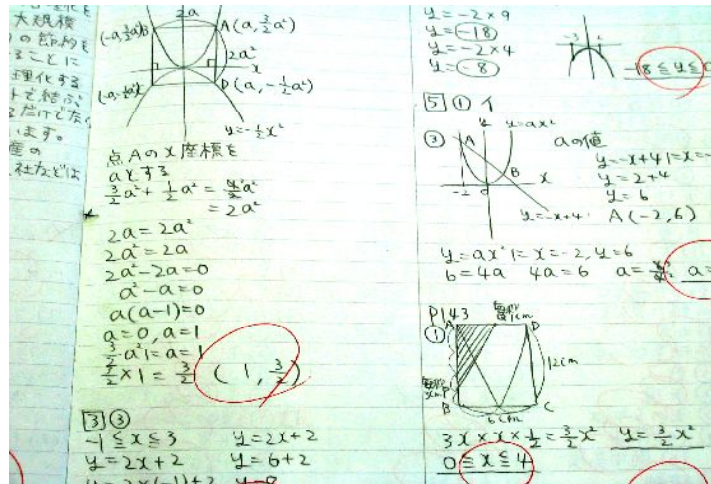 大規模
の節約を
ることに
理化する
トで結ぶ
るだけでなく
います。
度の
社などは
2a
A(a, 3/2a²)
2a²
x
D(a, -1/2a²)
y=-1/2x²
点Aのx座標を
aとする
3/2a²+1/2a²=4/2a²
=2a²
2a=2a²
2a²=2a
2a²-2a=0
a²-a=0
a(a-1)=0
a=0, a=1
3/2a²にa=1
3/2×1=3/2 (1, 3/2)
3 ③
-1≦x≦3 y=2x+2
y=2x+2 y=6+2
y=2×(-1)+2 y=8
y=-2×9
y=-18
y=-2×4
y=-8
-18≦y≦0
5 ① イ
③ A y y=ax² aの値
B x
-2 0
y=-x+4
y=-x+4にx=-
y=2+4
y=6
A(-2,6)
y=ax²にx=-2, y=6
6=4a 4a=6 a=
a=
P143
① A 毎秒1cm D
12cm
毎秒3cm
P
B 6cm C
3x×x×1/2=3/2x² y=3/2x²
0≦x≦4